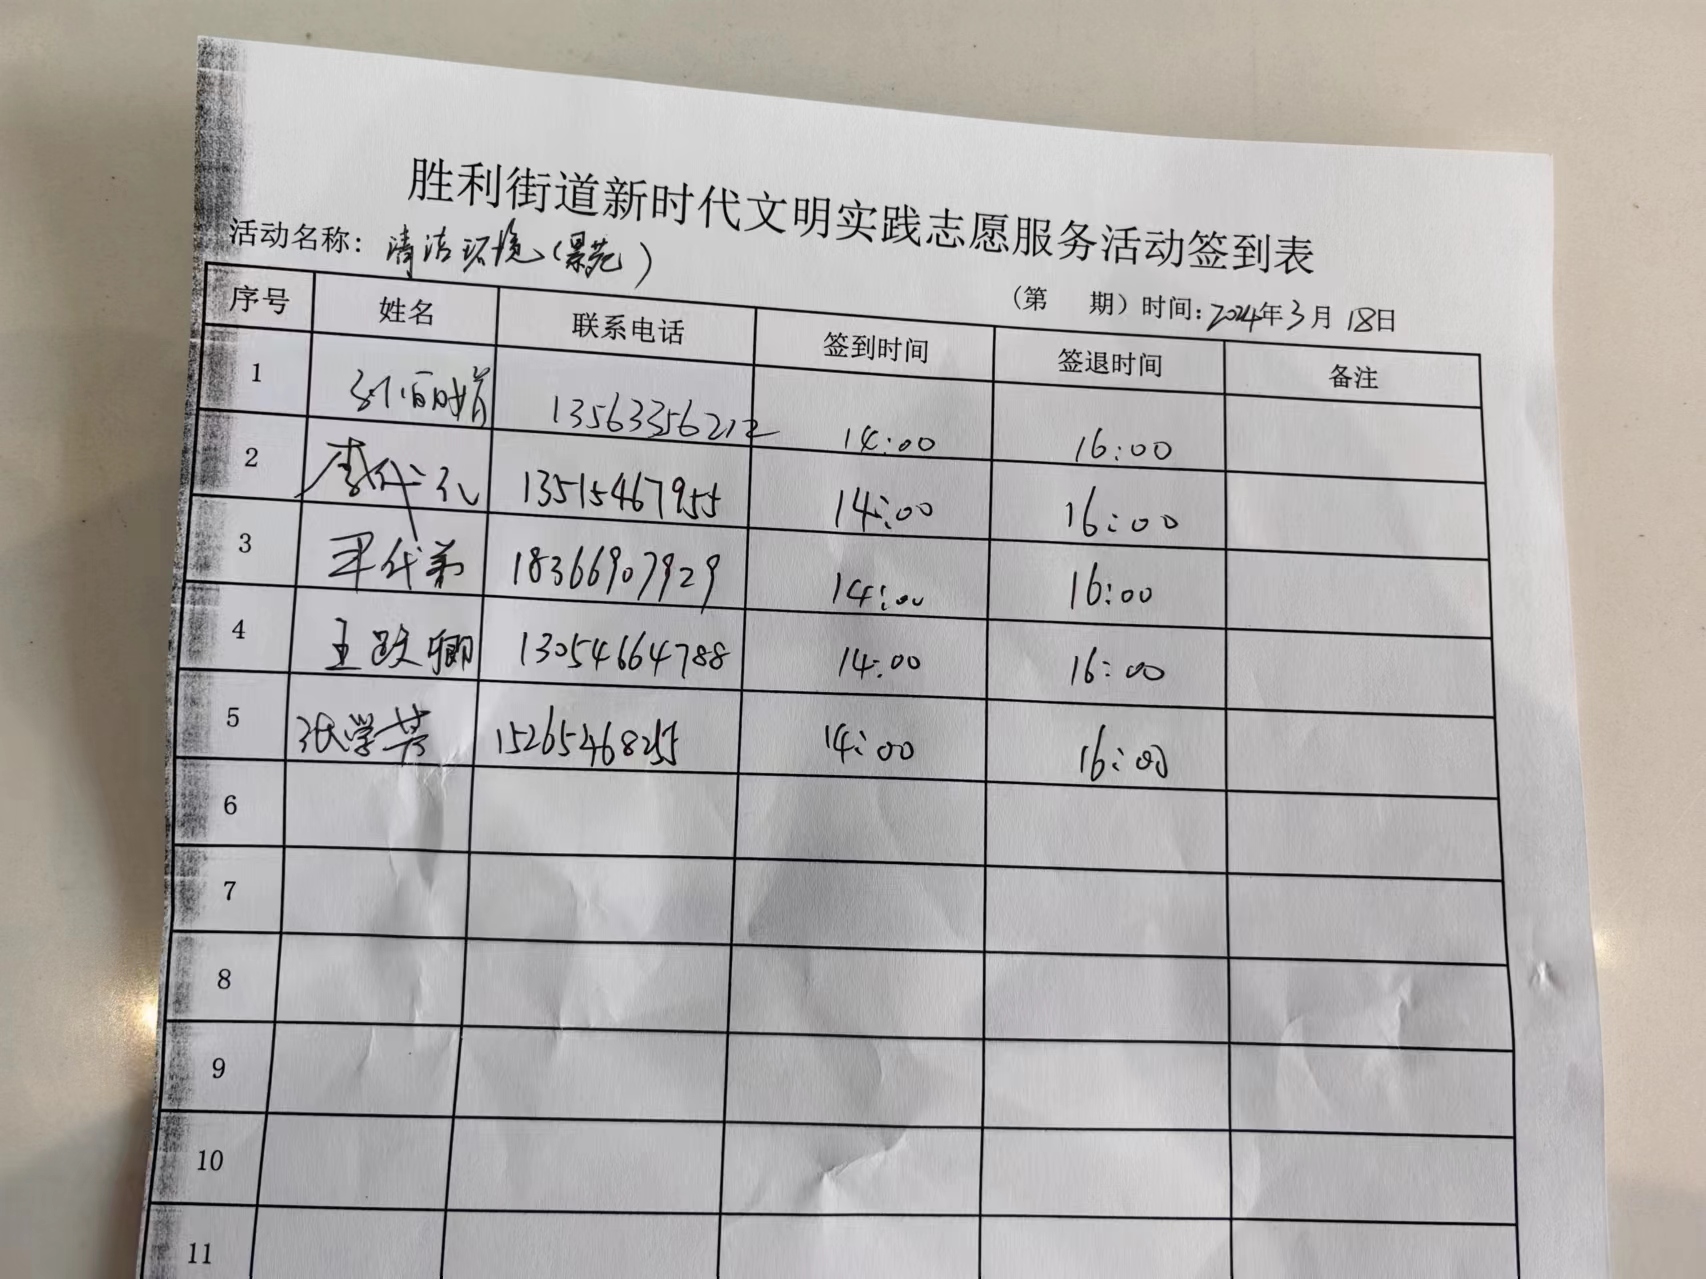 胜利街道新时代文明实践志愿服务活动签到表
活动名称：清洁环境（景苑）
（第 期）时间：2024年3月18日
序号 姓名 联系电话 签到时间 签退时间 备注
1 13563356212 14:00 16:00
2 13515467955 14:00 16:00
3 18366907929 14:00 16:00
4 王跃卿 13054664788 14:00 16:00
5 张学芳 15265468255 14:00 16:00
6
7
8
9
10
11